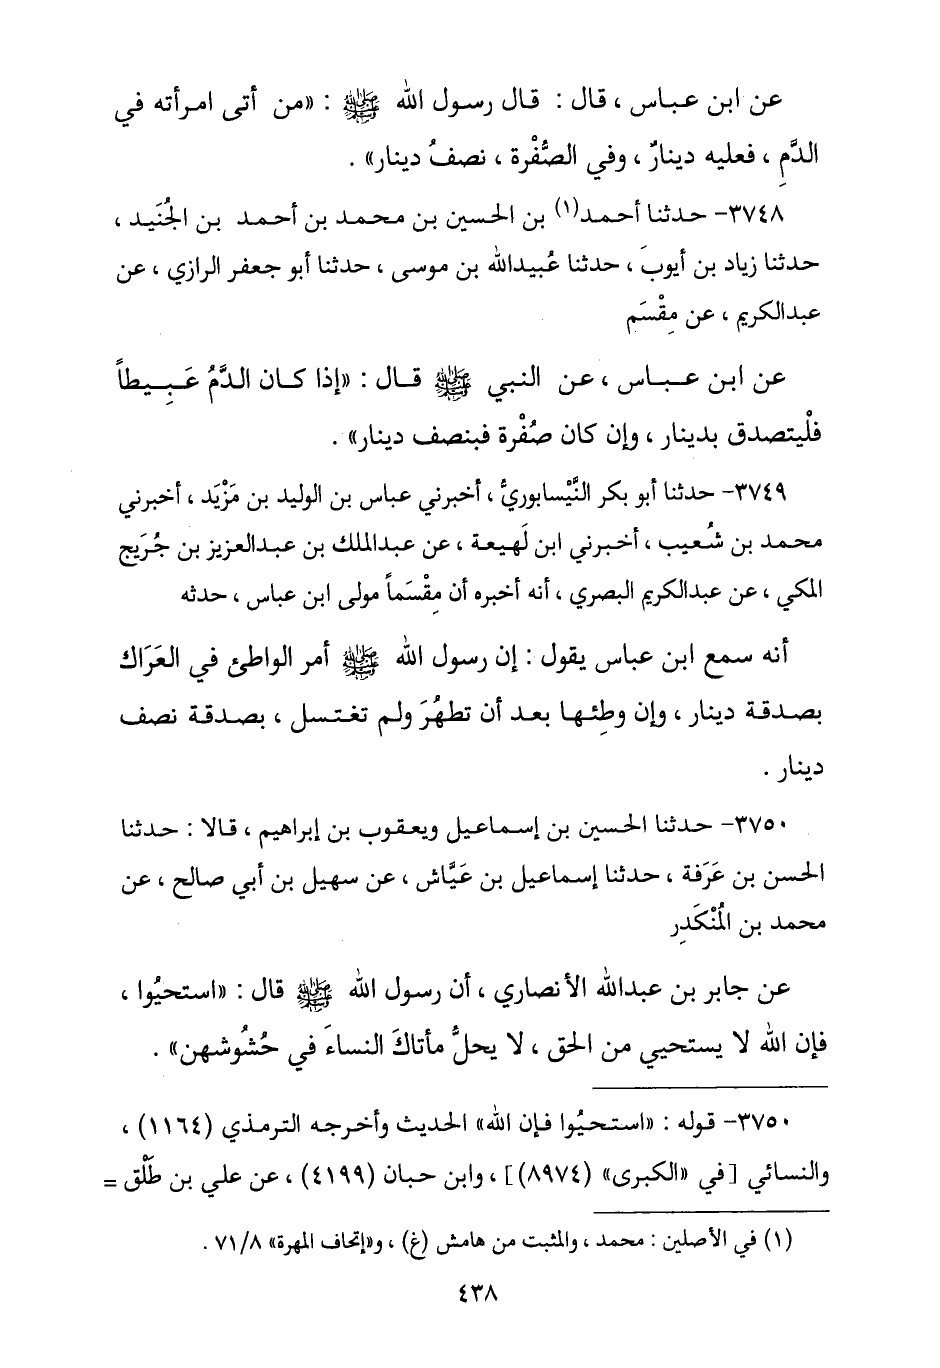 عن ابن عباس ، قال : قال رسول الله ﷺ : «من أتى امرأته في
الدَّمِ ، فعليه دينارٌ ، وفي الصُّفْرة ، نصفُ دينار» .
٣٧٤٨- حدثنا أحمد(١) بن الحسين بن محمد بن أحمد بن الجُنَيد ،
حدثنا زياد بن أيوبَ ، حدثنا عُبيدالله بن موسى ، حدثنا أبو جعفر الرازي ، عن
عبدالكريم ، عن مِقْسَم
عن ابن عباس ، عن النبي ﷺ قال : «إذا كان الدَّمُ عَبِيطاً
فلْيتصدق بدينار ، وإن كان صُفْرة فبنصف دينار» .
٣٧٤٩- حدثنا أبو بكر النَّيْسابوريُّ ، أخبرني عباس بن الوليد بن مَزْيَد ، أخبرني
محمد بن شُعيب ، أخبرني ابن لَهيعة ، عن عبدالملك بن عبدالعزيز بن جُرَيج
المكي ، عن عبدالكريم البصري ، أنه أخبره أن مِقْسَماً مولى ابن عباس ، حدثه
أنه سمع ابن عباس يقول : إن رسول الله ﷺ أمر الواطئ في العَرَاك
بصدقة دينار ، وإن وطِئها بعد أن تطهُرَ ولم تغتسل ، بصدقة نصف
دينار .
٣٧٥٠- حدثنا الحسين بن إسماعيل ويعقوب بن إبراهيم ، قالا : حدثنا
الحسن بن عَرَفة ، حدثنا إسماعيل بن عَيَّاش ، عن سهيل بن أبي صالح ، عن
محمد بن المُنْكَدِر
عن جابر بن عبدالله الأنصاري ، أن رسول الله ﷺ قال : «استحيُوا ،
فإن الله لا يستحيي من الحق ، لا يحلُّ مأتاكَ النساءَ في حُشُوشهن» .
٣٧٥٠- قوله : «استحيُوا فإن الله» الحديث وأخرجه الترمذي (١١٦٤) ،
والنسائي [في «الكبرى» (٨٩٧٤)] ، وابن حبان (٤١٩٩) ، عن علي بن طَلْق =
(١) في الأصلين : محمد ، والمثبت من هامش (غ) ، و«إتحاف المهرة» ٧١/٨ .
٤٣٨